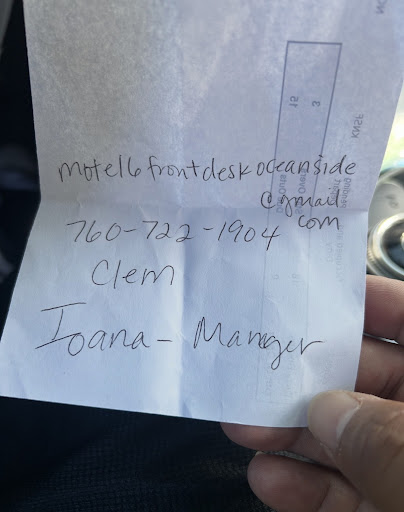 motel6frontdeskoceanside
@gmail
com
760-722-1904
Clem
Ioana - Manager